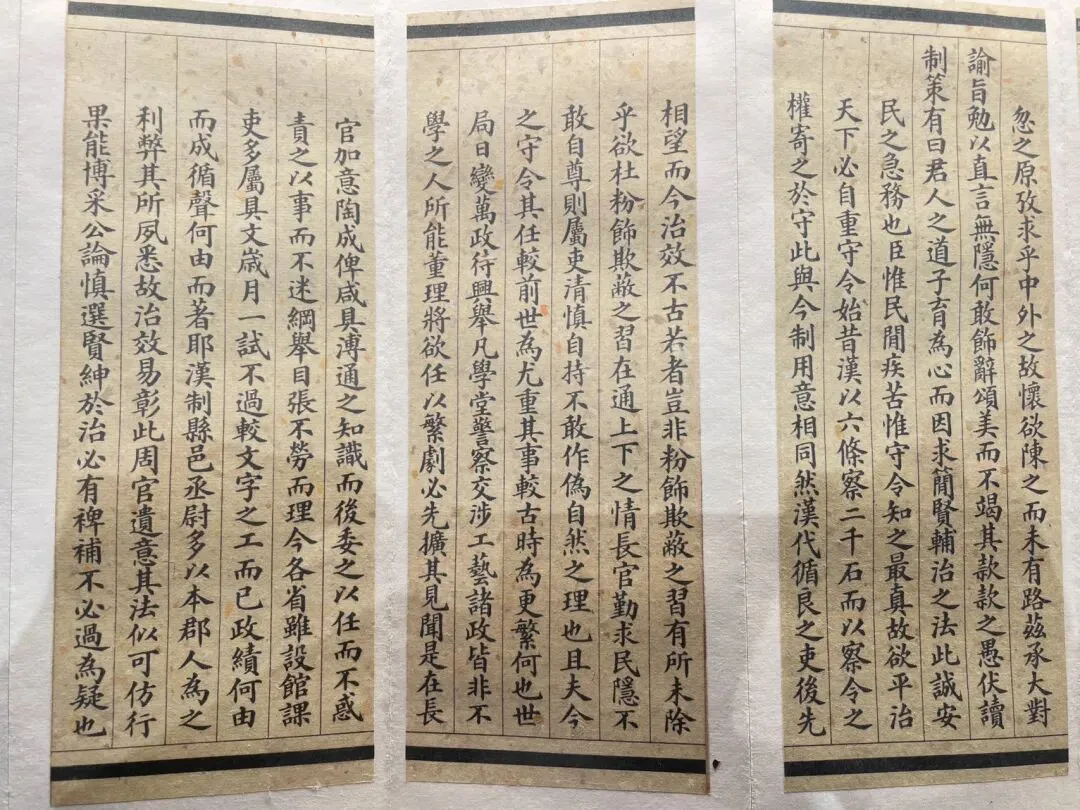 忽之原攷求乎中外之故懷欲陳之而未有路茲承大對
諭旨勉以直言無隱何敢飾辭頌美而不竭其款款之愚伏讀
制策有曰君人之道子育為心而因求簡賢輔治之法此誠安
民之急務也臣惟民間疾苦惟守令知之最真故欲平治
天下必自重守令始昔漢以六條察二千石而以察令之
權寄之於守此與今制用意相同然漢代循良之吏後先
相望而今治效不古若者豈非粉飾欺蔽之習有所未除
乎欲杜粉飾欺蔽之習在通上下之情長官勤求民隱不
敢自尊則屬吏清慎自持不敢作偽自然之理也且夫今
之守令其任較前世為尤重其事較古時為更繁何也世
局日變萬政待興舉凡學堂警察交涉工藝諸政皆非不
學之人所能董理將欲任以繁劇必先擴其見聞是在長
官加意陶成俾咸具溥通之知識而後委之以任而不惑
責之以事而不迷綱舉目張不勞而理今各省雖設館課
吏多屬具文歲月一試不過較文字之工而已政績何由
而成循聲何由而著耶漢制縣邑丞尉多以本郡人為之
利弊其所夙悉故治效易彰此周官遺意其法似可仿行
果能博采公論慎選賢紳於治必有裨補不必過為疑也